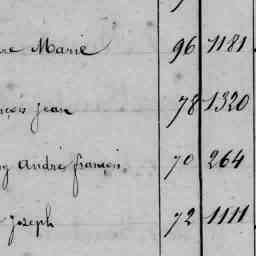 re Marie 96 1181
nçois Jean 78 1320
y André françois 70 264
Joseph 72 1111